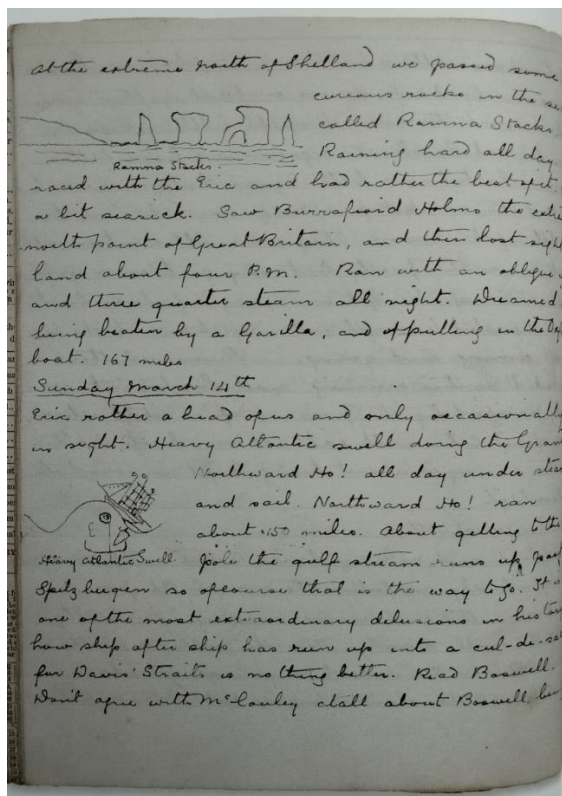 At the extreme north of Shetland we passed some
curious rocks in the se
called Ramna Stacks.
Raining hard all day
Ramna Stacks.
raced with the Eric and had rather the best of it
a bit seasick. Saw Burrafiord Holms the extre
north point of Great Britain, and then lost sight
land about four P.M. Ran with an oblique
and three quarter steam all night. Dreamed
being beaten by a Gorilla, and of pulling in the
boat. 167 miles
Sunday March 14th
Eric rather a head of us and only occasionally
in sight. Heavy Atlantic swell doing the Gran
Northward Ho! all day under stea
and sail. Northward Ho! ran
about 150 miles. About getting to the
Heavy Atlantic Swell
pole the gulf stream runs up past
Spitzbergen so ofcourse that is the way to go. It
one of the most extraordinary delusions in history
how ship after ship has run up into a cul-de-sac
for Davis' Straits is nothing better. Read Boswell.
Don't agree with McCauley atall about Boswell